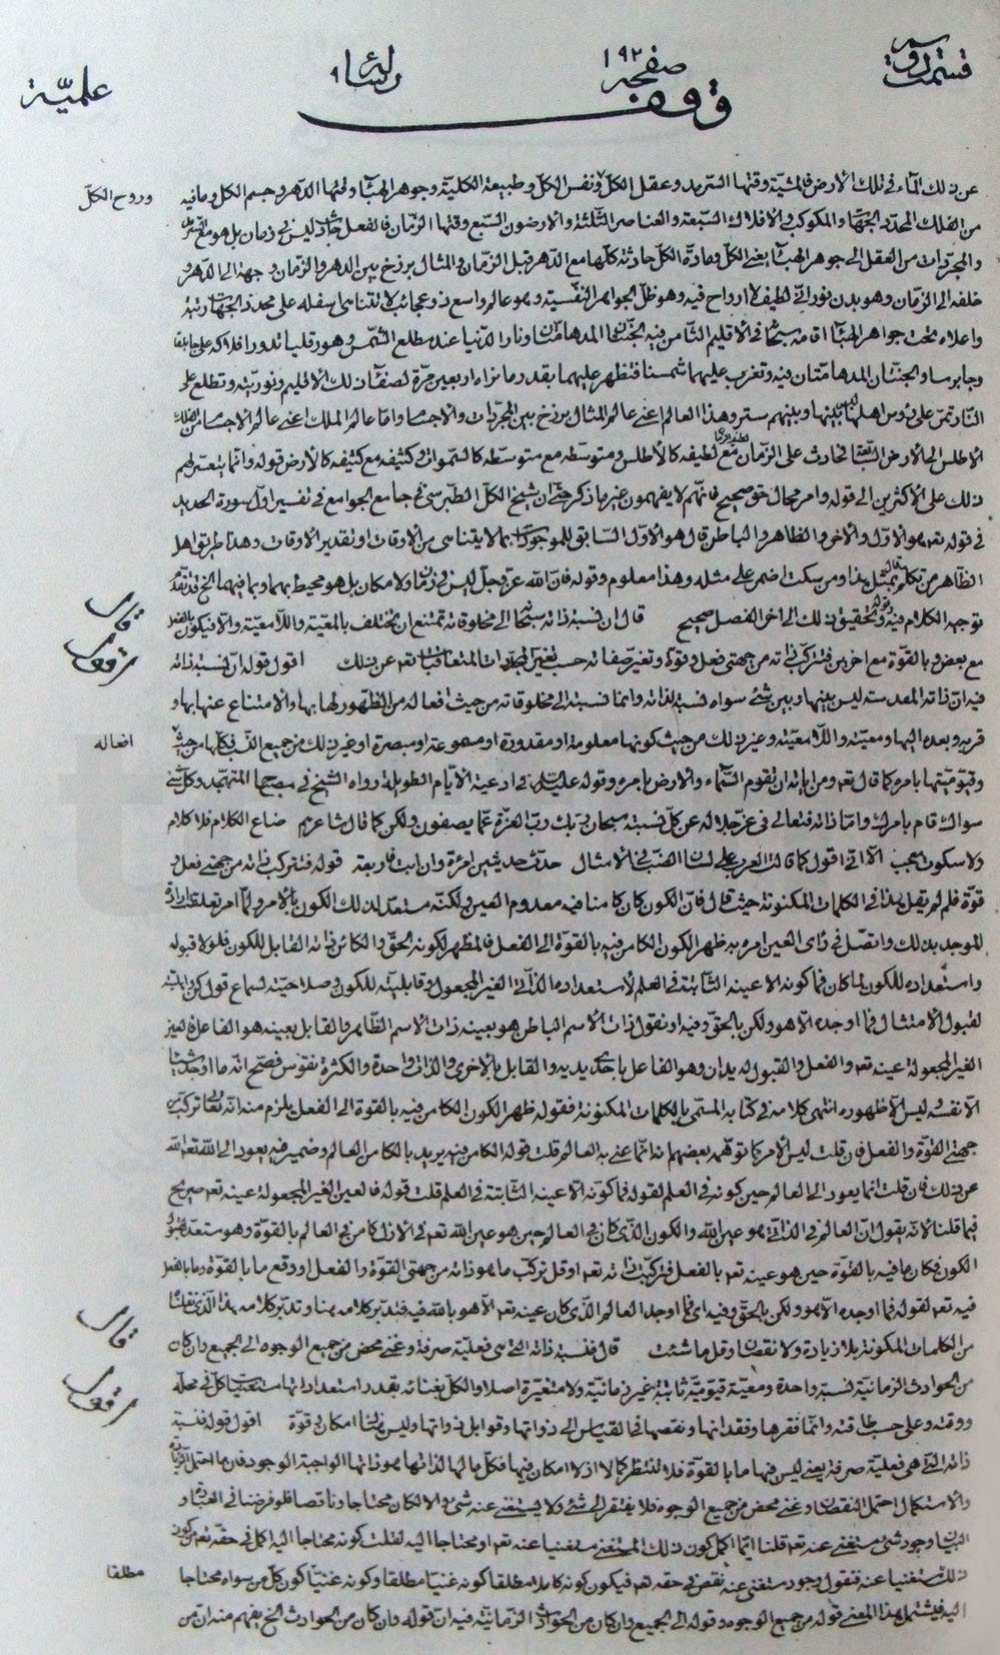 قسمت دويم
صفحه ١٩٢
رساله ٩
علميّة
وقف
عن ذلك الماء فى تلك الارض فالمشيّة وقتها السّرمد وعقل الكلّ ونفس الكلّ وطبيعة الكلية وجوهر الهبآء وقتها الدّهر وجسم الكل وما فيه
وروح الكلّ
من الفلك المحدّد الجهات والمكوكب والافلاك السّبعة والعناصر الثّلثة والارضون السّبع وقتها الزّمان فالفعل ليس فى زمان بل هو مع السّرمد
والمجرّدات من العقل الى جوهر الهبآء يعنى الكلّ ومادّة الكلّ حادثة كلّها مع الدّهر قبل الزّمان والمثال برزخ بين الدهر والزّمان وجهه الى الدّهر و
خلفه الى الزّمان وهو بدن نورانى لطيف لا ارواح فيه وهو ظلّ الجواهر النّفسيّة وهو عالم واسع ذو عجائب لا تتناهى اسفله على محدد الجهات رتبة
واعلاه تحت جواهر الهبآء اقامه سبحانه فى الاقليم الثامن فيه الجنّتان المدهامّتان ونار الدّنيا عند مطلع الشّمس وهورقليا تدور افلاكه على جابلقا
وجابرسا والجنّتان المدهامّتان فيه وتغرب عليهما شمسنا فتظهر عليهما بقدر ما نراه اربعين مرّة لصفآء ذلك الاقليم ونوريّته وتطلع على
النّار تمرّ على رؤس اهلها ليس بينها وبينهم ستر وهذا العالم اعنى عالم المثال برزخ بين المجرّدات والاجسام وامّا عالم الملك اعنى عالم الاجسام من الفلك
الاطلس الى الارض السّابعة الحادث على الزّمان مع لطيفه كالاطلس ومتوسّطه مع متوسّطه كالسّموات وكثيفه مع كثيفه كالارض قوله وانّما يتعسّر فهم
ذلك على الاكثرين الى قوله وامر محال حق صحيح فانّهم لا يفهمون غير ما ذكر حتى ان شيخ الكلّ الطّبرسى فى جامع الجوامع فى تفسير اوّل سورة الحديد
فى قوله تعم هو الاوّل والاخر والظاهر والباطن قال هو الاوّل السّابق للموجودات بما لا يتناهى من الاوقات او تقدير الاوقات وهذا طريق اهل
الظّاهر من تكلم بمثل هذا ومن سكت اضمر على مثله وهذا معلوم وقوله فانّ الله عزّ وجلّ ليس فى زمان ولا مكان بل هو محيط بهما وبما فيهما الخ قد تقدّم
توجيه الكلام فيه وتحقيق ذلك الى اخر الفصل صحيح قال انّ نسبة ذاته سبحانه الى مخلوقاته تمتنع ان يختلف بالمعيّة واللّامعيّة والّا فيكون بالفعل
قال
مع بعض وبالقوّة مع اخرين فتتركّب ذاته من جهتى فعل وقوّة وتغير صفاته حسب تغيّر المتجدّدات المتعاقبات تعم عن ذلك اقول قوله انّ نسبة ذاته
اقول
فيه ان ذاته المقدسة ليس بينها وبين شىء سواه نسبة لذاته وانّما نسبته الى مخلوقاته من حيث فعاله من الظّهور لها بها والامتناع عنها بها و
قربه وبعده اليها ومعيّته واللّامعيّة وغير ذلك من حيث كونها معلومة او مقدورة او مسموعة او مبصرة او غير ذلك من جميع النّسب فكلّها من حيث
افعاله
وقيّوميّتها بامره كما قال تعم ومن اياته ان تقوم السّماء والارض بامره وقوله عليه السّلام فى ادعية الايّام الطويلة رواه الشّيخ فى مصباح المتهجّد وكلّ شىء
سواك قام بامرك وامّا ذاته فتعالى فى عزّ جلاله عن كلّ نسبة سبحان ربّك ربّ العزّة عمّا يصفون ولكن كما قال شاعرهم ضاع الكلام فلا كلام
ولا سكون معجب الّا انّى اقول كما قالت العرب على لسان الضّبّ فى الامثال حدّث حديثين امرءة وان ابت فاربعة قوله فتتركّب ذاته من جهتى فعل و
قوّة فلم لم يقل بهذا فى الكلمات المكنونة حيث قال فانّ الكون كان كامنا فيه معدوم العين ولكنّه مستعدّ لذلك الكون بالامر ولمّا امر تعلّقت ارادة
الموجد بذلك واتّصل فى رأى العين امره به ظهر الكون الكامن فيه بالقوّة الى الفعل فالمظهر لكونه الحقّ والكائن ذاته القابل للكون فلولا قبوله
واستعداده للكون لما كان فما كونه الا عينه الثّابتة فى العلم لاستعداده الذّاتى الغير المجعول وقابليّته للكون وصلاحيّته لسماع قول كن واهليّته
لقبول الامتثال فما اوجده الّا هو ولكن بالحقّ وفيه او نقول ذات الاسم الباطن هو بعينه ذات الاسم الظّاهر والقابل بعينه هو الفاعل فالعين
الغير المجعولة عينه تعم والفعل والقبول له يدان وهو الفاعل باحدى يديه والقابل بالاخرى والذّات واحدة والكثرة نقوش فصحّ انّه ما اوجد شيئا
الّا نفسه وليس الّا ظهوره انتهى كلامه فى كتابه المسمّى بالكلمات المكنونة فقوله ظهر الكون الكامن فيه بالقوة الى الفعل يلزم منه انّه تعالى تركّب من
جهتى القوّة والفعل فان قلت ليس الامر كما توهّمه بعضهم انّما عنى به العالم قلت قوله الكامن فيه يريد بالكامن العالم وضمير فيه يعود الى الله تعم الله
عن ذلك فان قلت انما يعود الى العالم حين كونه فى العلم لقوله فما كونه الّا عينه الثّابتة فى العلم قلت قوله فالعين الغير المجعولة عينه تعم صريح
فيما قلنا لانّه يقول انّ العالم فى الذّات هو عين الله والكون الذّى كان فى العالم حين هو عين الله تعم فى الازل كامن فى العالم بالقوّة وهو مستعدّ لقبول
الكون فكان ما فيه بالقوّة حين هو عينه تعم بالفعل فتركّبت ذاته تعم او قل تركّب ما هو ذاته من جهتى القوّة والفعل او وقع ما بالقوّة وما بالفعل
فيه تعم لقوله فما اوجده الّا هو ولكن بالحقّ وفيه اى فما اوجد العالم الذّى كان عينه تعم الّا هو بالله فيه فتدبّر كلامه هنا وتدبّر كلامه هذا الّذى نقلنا
من الكلمات المكنونة بلا زيادة ولا نقصان وقل ما شئت قال فنسبة ذاته الّتى هى فعليّة صرفة وغنى محض من جميع الوجوه الى الجميع وان كان
قال
من الحوادث الزمانيّة نسبة واحدة ومعيّة قيّوميّة ثابتة غير زمانيّة ولا متغيّرة اصلا والكلّ بغنائه بقدر استعداداتها مستغنيا كلّ فى محلّه
ووقته وعلى حسب طاقته وانّما فقرها وفقدانها ونقصها بالقياس الى ذواتها وقوابل ذواتها وليس هناك امكان وقوة اقول قوله فنسبة
اقول
ذاته الّتى هى فعليّة صرفة يعنى ليس فيها ما بالقوّة فلا تنتظر كمالا اذ لا امكان فيها فكلّ ما لها لذاتها هو ذاتها الواجبة الوجود فان ما احتمل الزّيادة
والاستكمال احتمل النّقصان وغنى محض من جميع الوجوه فلا يفتقر الى شىء ولا يستغنى عنه شىء والّا لكان محتاجا وناقصا فلو فرضنا فى العبارة و
البيان وجود شىء مستغنى عنه تعم قلنا ايّما اكمل كون ذلك المستغنى مستغنيا عنه تعم او محتاجا اليه لقلت كونه محتاجا اليه اكمل فى حقّه تعم من كون
ذلك مستغنيا عنه فنقول وجود مستغنى عنه نقص فى حقّه تعم فيكون كونه كاملا مطلقا كونه غنيّا مطلقا وكونه غنيّا كون كلّ من سواه محتاجا
مطلقا
اليه فيشتمل هذا المعنى قوله من جميع الوجوه وقوله الى الجميع وان كان من الحوادث الزّمانيّة فيه ان قوله وان كان من الحوادث الخ يفهم منه انّ من